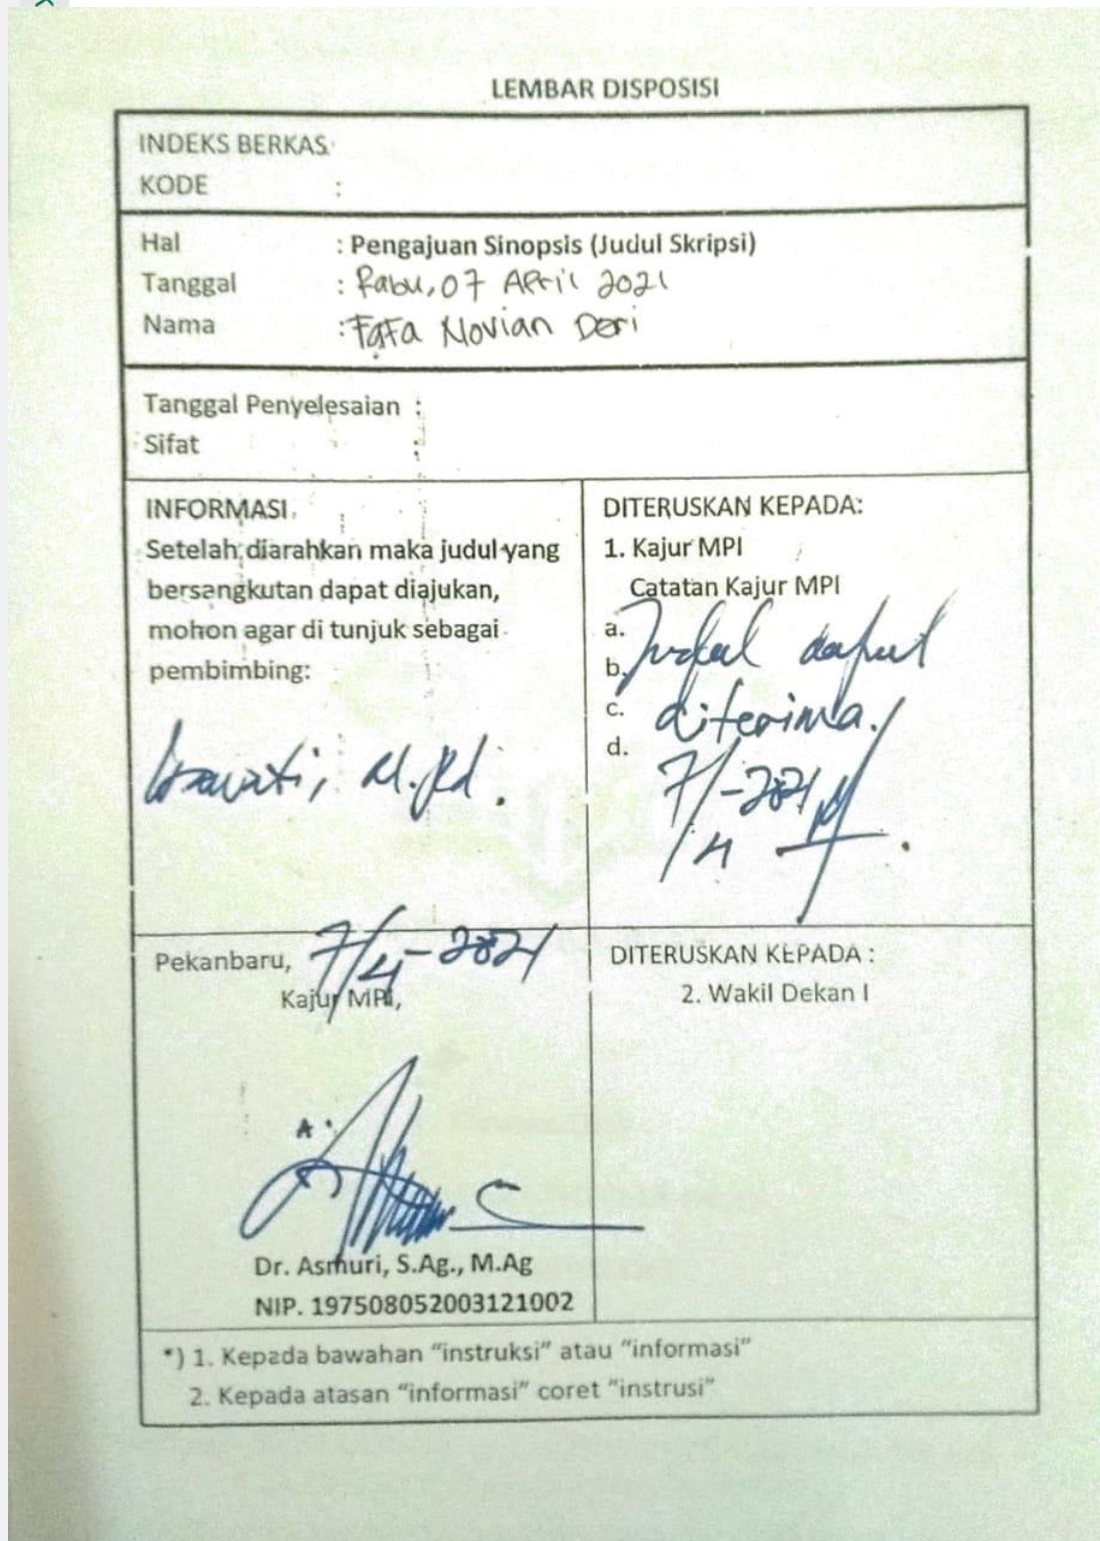 LEMBAR DISPOSISI
INDEKS BERKAS
KODE :
Hal : Pengajuan Sinopsis (Judul Skripsi)
Tanggal : Rabu, 07 April 2021
Nama : Novian Deri
Tanggal Penyelesaian :
Sifat :
INFORMASI
Setelah diarahkan maka judul yang
bersangkutan dapat diajukan,
mohon agar di tunjuk sebagai
pembimbing:
M.Pd.
DITERUSKAN KEPADA:
1. Kajur MPI
Catatan Kajur MPI
a.
b.
c.
d.
Judul dapat
diterima.
7/4-2021
Pekanbaru, 7/4-2021
Kajur MPI,
Dr. Asmuri, S.Ag., M.Ag
NIP. 197508052003121002
DITERUSKAN KEPADA :
2. Wakil Dekan I
*) 1. Kepada bawahan "instruksi" atau "informasi"
2. Kepada atasan "informasi" coret "instrusi"